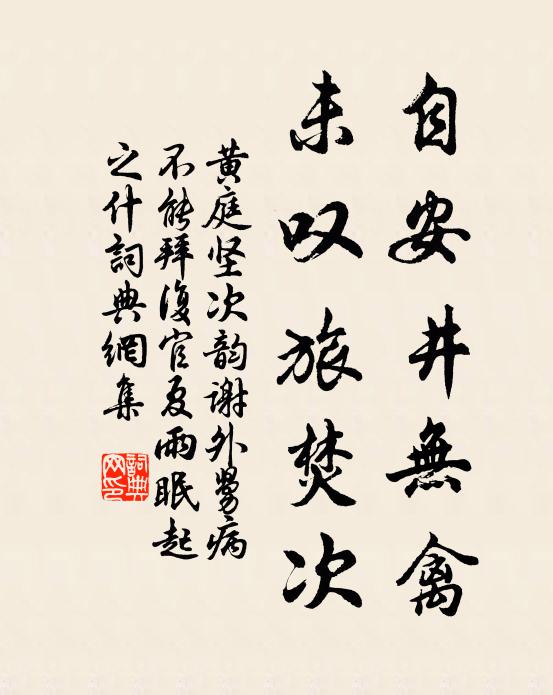 自安井無禽
未叹旅焚次
黄庭坚次韵谢外舅病
不能拜復官夏雨眠起
之什詞典網集
詞典网印